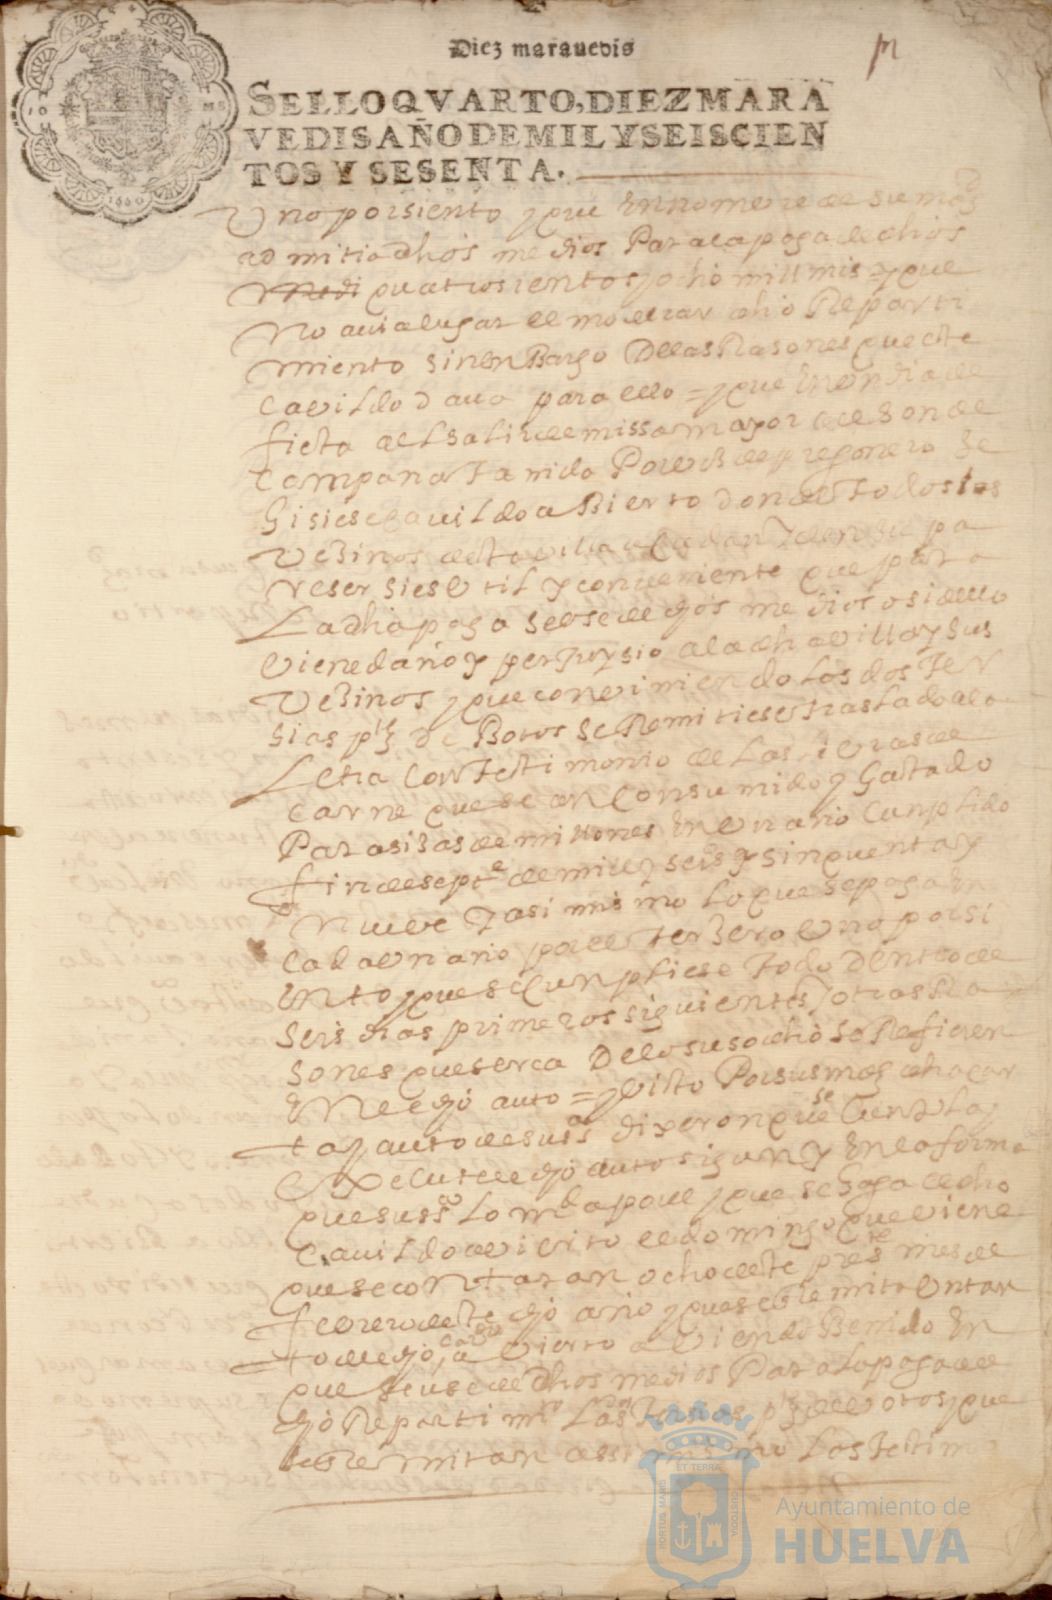 Diez maravedis
SELLO QVARTO, DIEZ MARA
VEDIS AÑO DE MIL Y SEISCIEN
TOS Y SESENTA.
1660
Uno por siento y que en nombre de su magd
admitia dhos medios Para la paga de dhos
quatrosientos y ocho mill mrs y que
No avia lugar de moderar dho Reparti
miento sin enBargo De las Rasones que este
cavildo dava para ello = y que en un dia de
fiesta al salir de missa mayor a son de
campana tanida Por Voz de pregonero se
hisiese cavildo aBierto donde todos los
Vezinos desta villa su pa
reser si es util y conveniente que para
La dha paga se use de dhos medios o si dello
viene daño y perjuysio a la dha villa y sus
Vezinos y que conviniendo los dos ter
sias ptes de Botos Se Remitiese traslado a la
Letra con testimonio de las
carne que se an consumido y gastado
Para sisas de millones en un año cunplido
fin de septe de mill y seis y sinquenta y
Nueve Y asi mismo lo que se paga en
cada un año por el terzero uno por si
ento y que se cunpliese todo dentro de
seis dias primeros siguientes y otras Ra
sones que serca De lo susodho se Refieren
en el dho auto = y visto Por sus mds dha car
ta y auto de su sa dixeron que se cunpla y
execute el dho auto sigun y en la forma
que su sa lo manda y que se haga el dho
cavildo avierto el domingo que viene
que se contaran ocho deste preste mes de
febrero deste dho año y que se le mita un tan
to del dho cavdo avierto aviendo Benido en
que se use de Dhos medios Para la paga del
dho Repartimto Las dos tersias ptes de votos y que
se Remitan assi mismo los testimo
ET TERRA
PORTUS MARIS
CUSTODIA
Ayuntamiento de
HUELVA